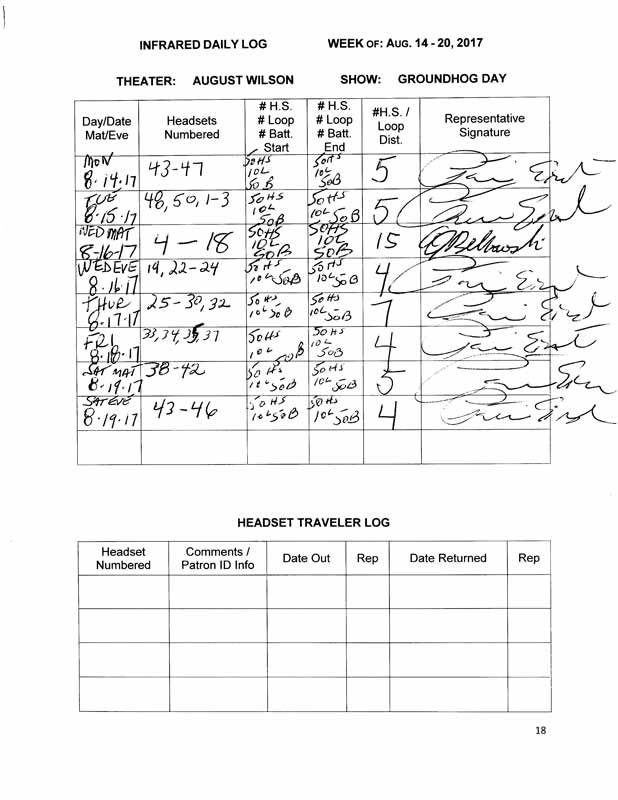 INFRARED DAILY LOG WEEK OF: AUG. 14 - 20, 2017
THEATER: AUGUST WILSON SHOW: GROUNDHOG DAY
Day/Date
Mat/Eve
Headsets
Numbered
# H.S.
# Loop
# Batt.
Start
# H.S.
# Loop
# Batt.
End
#H.S. /
Loop
Dist.
Representative
Signature
MON
8.14.17
43-47
50HS
10L
50B
50HS
10L
50B
5
TUE
8.15.17
48, 50, 1-3
50HS
10L
50B
50HS
10L 50B
5
WED MAT
8-16-17
4-18
50HS
10L
50B
50HS
10L
50B
15
WED EVE
8.16.17
19, 22-24
50HS
10L 50B
50HS
10L
50B
4
THUR
8.17.17
25-30, 32
50HS
10L 50B
50HS
10L
50B
7
FRI
8.18.17
33, 34, 35, 37
50HS
10L 50B
50HS
10L
50B
4
SAT MAT
8.19.17
38-42
50HS
10L 50B
50HS
10L
50B
5
SAT EVE
8.19.17
43-46
50HS
10L 50B
50HS
10L 50B
4
HEADSET TRAVELER LOG
Headset
Numbered
Comments /
Patron ID Info
Date Out
Rep
Date Returned
Rep
18